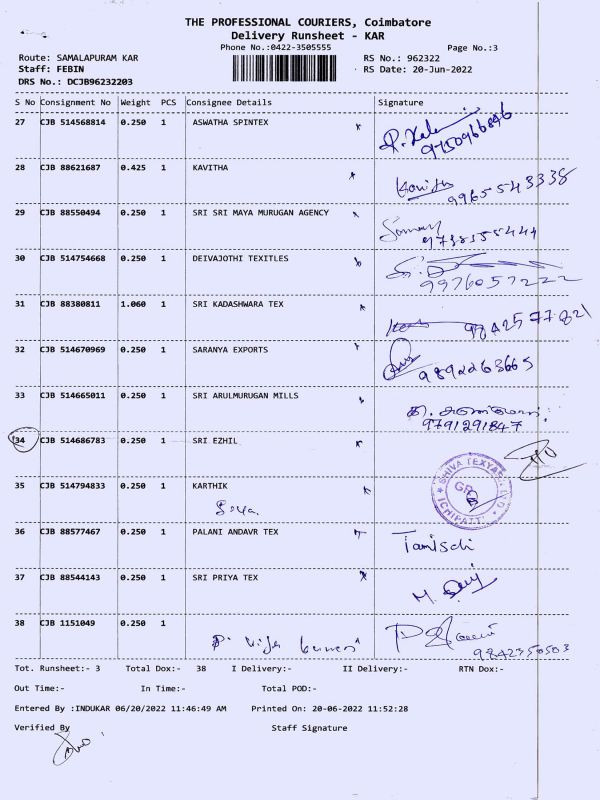 THE PROFESSIONAL COURIERS, Coimbatore
Delivery Runsheet - KAR
Phone No.:0422-3505555 Page No.:3
Route: SAMALAPURAM KAR RS No.: 962322
Staff: FEBIN RS Date: 20-Jun-2022
DRS No.: DCJB96232203
S No Consignment No Weight PCS Consignee Details Signature
27 CJB 514568814 0.250 1 ASWATHA SPINTEX
9750966846
28 CJB 88621687 0.425 1 KAVITHA
Kavitha
9965543338
29 CJB 88550494 0.250 1 SRI SRI MAYA MURUGAN AGENCY
30 CJB 514754668 0.250 1 DEIVAJOTHI TEXITLES
9976057222
31 CJB 88380811 1.060 1 SRI KADASHWARA TEX
9842577821
32 CJB 514670969 0.250 1 SARANYA EXPORTS
9892263665
33 CJB 514665011 0.250 1 SRI ARULMURUGAN MILLS
9791291847
34 CJB 514686783 0.250 1 SRI EZHIL
SHIVA TEXYARN
35 CJB 514794833 0.250 1 KARTHIK
36 CJB 88577467 0.250 1 PALANI ANDAVR TEX
37 CJB 88544143 0.250 1 SRI PRIYA TEX
38 CJB 1151049 0.250 1
9842350503
Tot. Runsheet:- 3 Total Dox:- 38 I Delivery:- II Delivery:- RTN Dox:-
Out Time:- In Time:- Total POD:-
Entered By :INDUKAR 06/20/2022 11:46:49 AM Printed On: 20-06-2022 11:52:28
Verified By Staff Signature